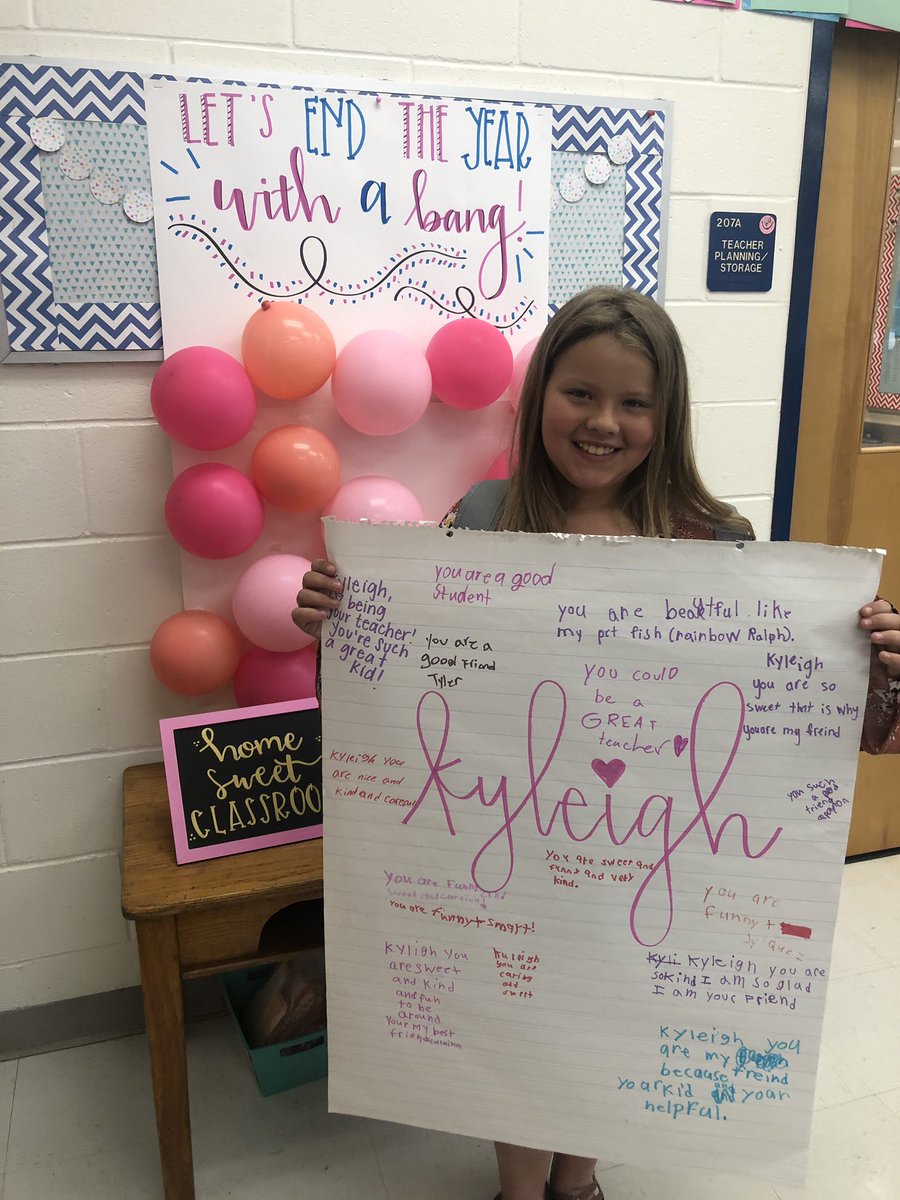 LET'S END THE YEAR
with a bang!
207A
TEACHER
PLANNING/
STORAGE
home
sweet
CLASSROO
you are a good
student
Kyleigh,
being
your teacher!
You're such
a great
kid!
you are a
good friend
Tyler
you are beautful like
my pet fish (rainbow Ralph).
you could
be a
GREAT
teacher
Kyleigh
you are so
sweet that is why
you are my freind
kyleigh
Kyleigh you
are nice and
kind and
you such
a good
friend
you are sweet and
funny and very
kind.
you are Funny and
sweet and
you are funny + smart!
you are
funny +
Kyligh you
are sweet
and kind
and fun
to be
around
your my best
friend
Kyleigh
you are
caring
and
sweet
Kyli Kyleigh you are
so kind I am so glad
I am your Friend
Kyleigh, you
are my
because freind
yoar kid and yoar
helpful.